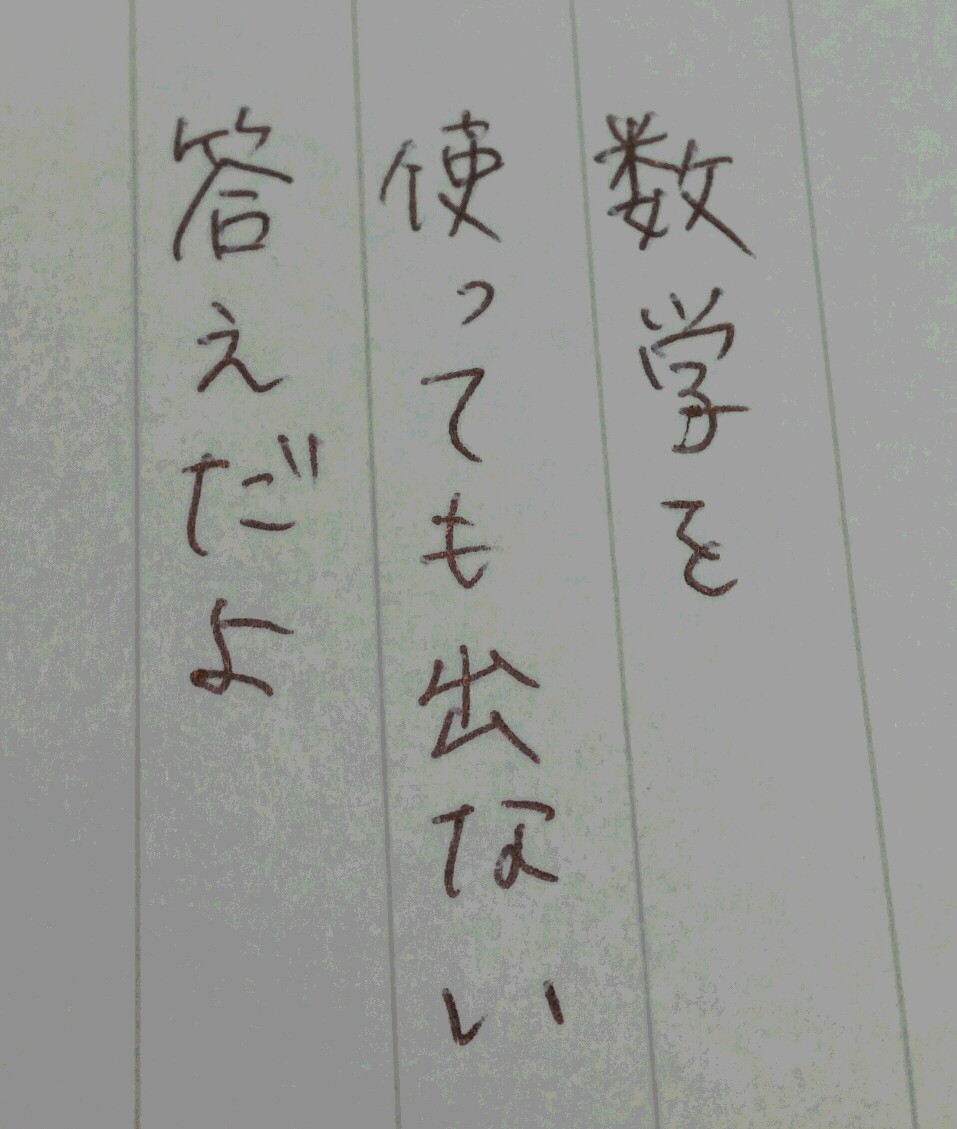 数学を
使っても出ない
答えだよ